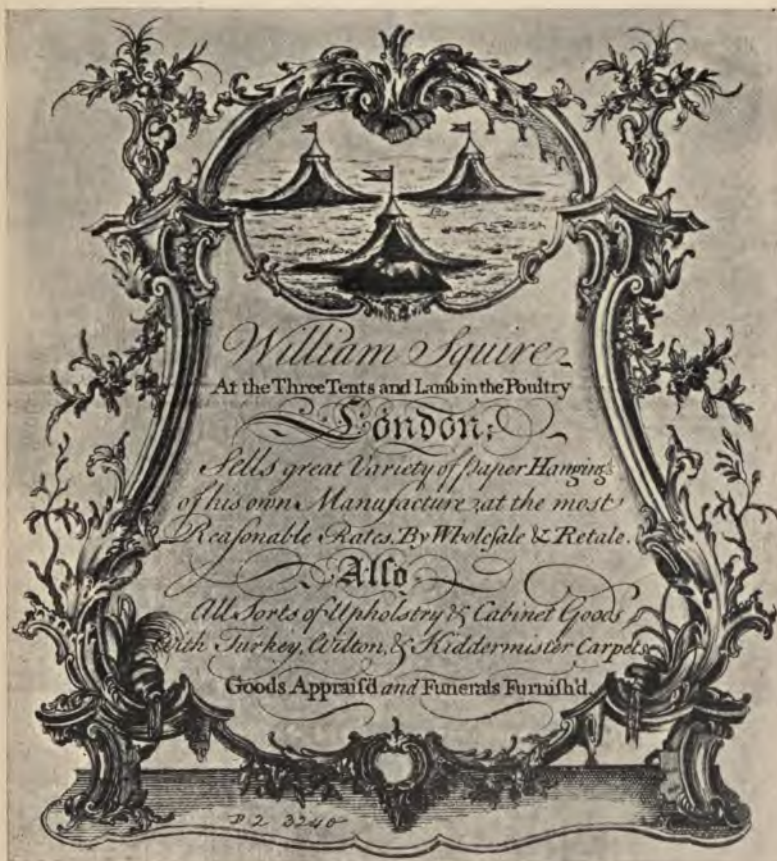 William Squire
At the Three Tents and Lamb in the Poultry
London;
Sells great Variety of Paper Hangings
of his own Manufacture at the most
Reaſonable Rates, By Wholeſale & Retale.
Alſo
All Sorts of Upholstry & Cabinet Goods
With Turkey, Wilton, & Kiddermister Carpets
Goods Appraiſ'd and Funerals Furniſh'd.
D 2 3240